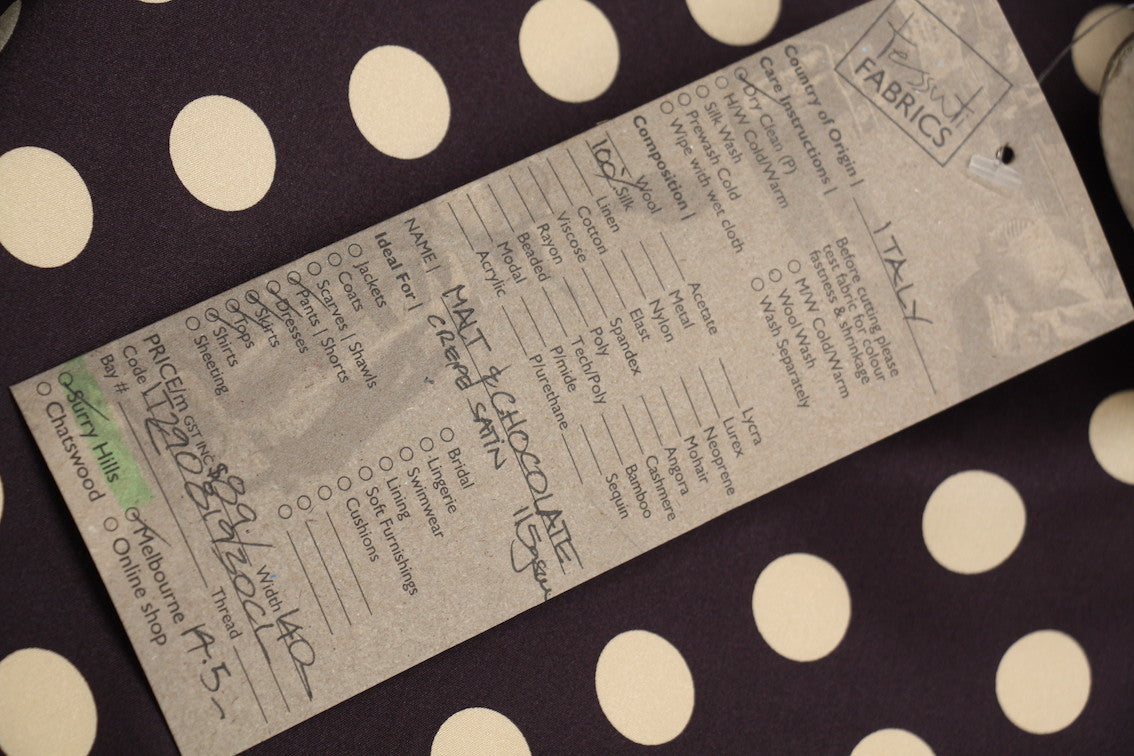 Tessuti
FABRICS
Country of Origin | ITALY
Care Instructions |
Dry Clean (P)
H/W Cold/Warm
Silk Wash
Prewash Cold
Wipe with wet cloth
Before cutting please
test fabric for colour
fastness & shrinkage
M/W Cold/Warm
Wool Wash
Wash Separately
Composition |
Wool
100% Silk
Linen
Cotton
Viscose
Rayon
Beaded
Modal
Acrylic
Acetate
Metal
Nylon
Elast
Spandex
Poly
Tech/Poly
P/mide
P/urethane
Lycra
Lurex
Neoprene
Mohair
Angora
Cashmere
Bamboo
Sequin
NAME | MALT & CHOCOLATE
CREPE SATIN 115gsm
Ideal For |
Jackets
Coats
Scarves | Shawls
Pants | Shorts
Dresses
Skirts
Tops
Shirts
Sheeting
Bridal
Lingerie
Swimwear
Lining
Soft Furnishings
Cushions
PRICE/m GST INC $89.- Width 140
Code
Bay #
Thread
Surry Hills
Chatswood
Melbourne 14.5-
Online shop